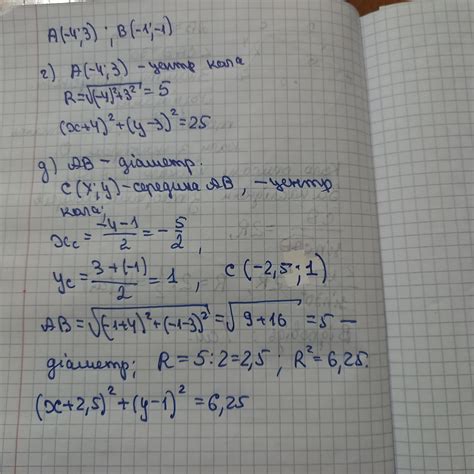 A(-4;3) ; B(-1;-1)
г) A(-4;3) - центр кола
R=√((-4)²+3²)=5
(x+4)²+(y-3)²=25
д) AB - діаметр.
C(x;y)-середина AB, -центр
кола;
x_c = (-4-1)/2 = -5/2,
y_c = (3+(-1))/2 = 1, C(-2,5;1)
AB=√((-1+4)²+(-1-3)²)=√(9+16)=5-
діаметр; R=5:2=2,5; R²=6,25.
(x+2,5)²+(y-1)²=6,25